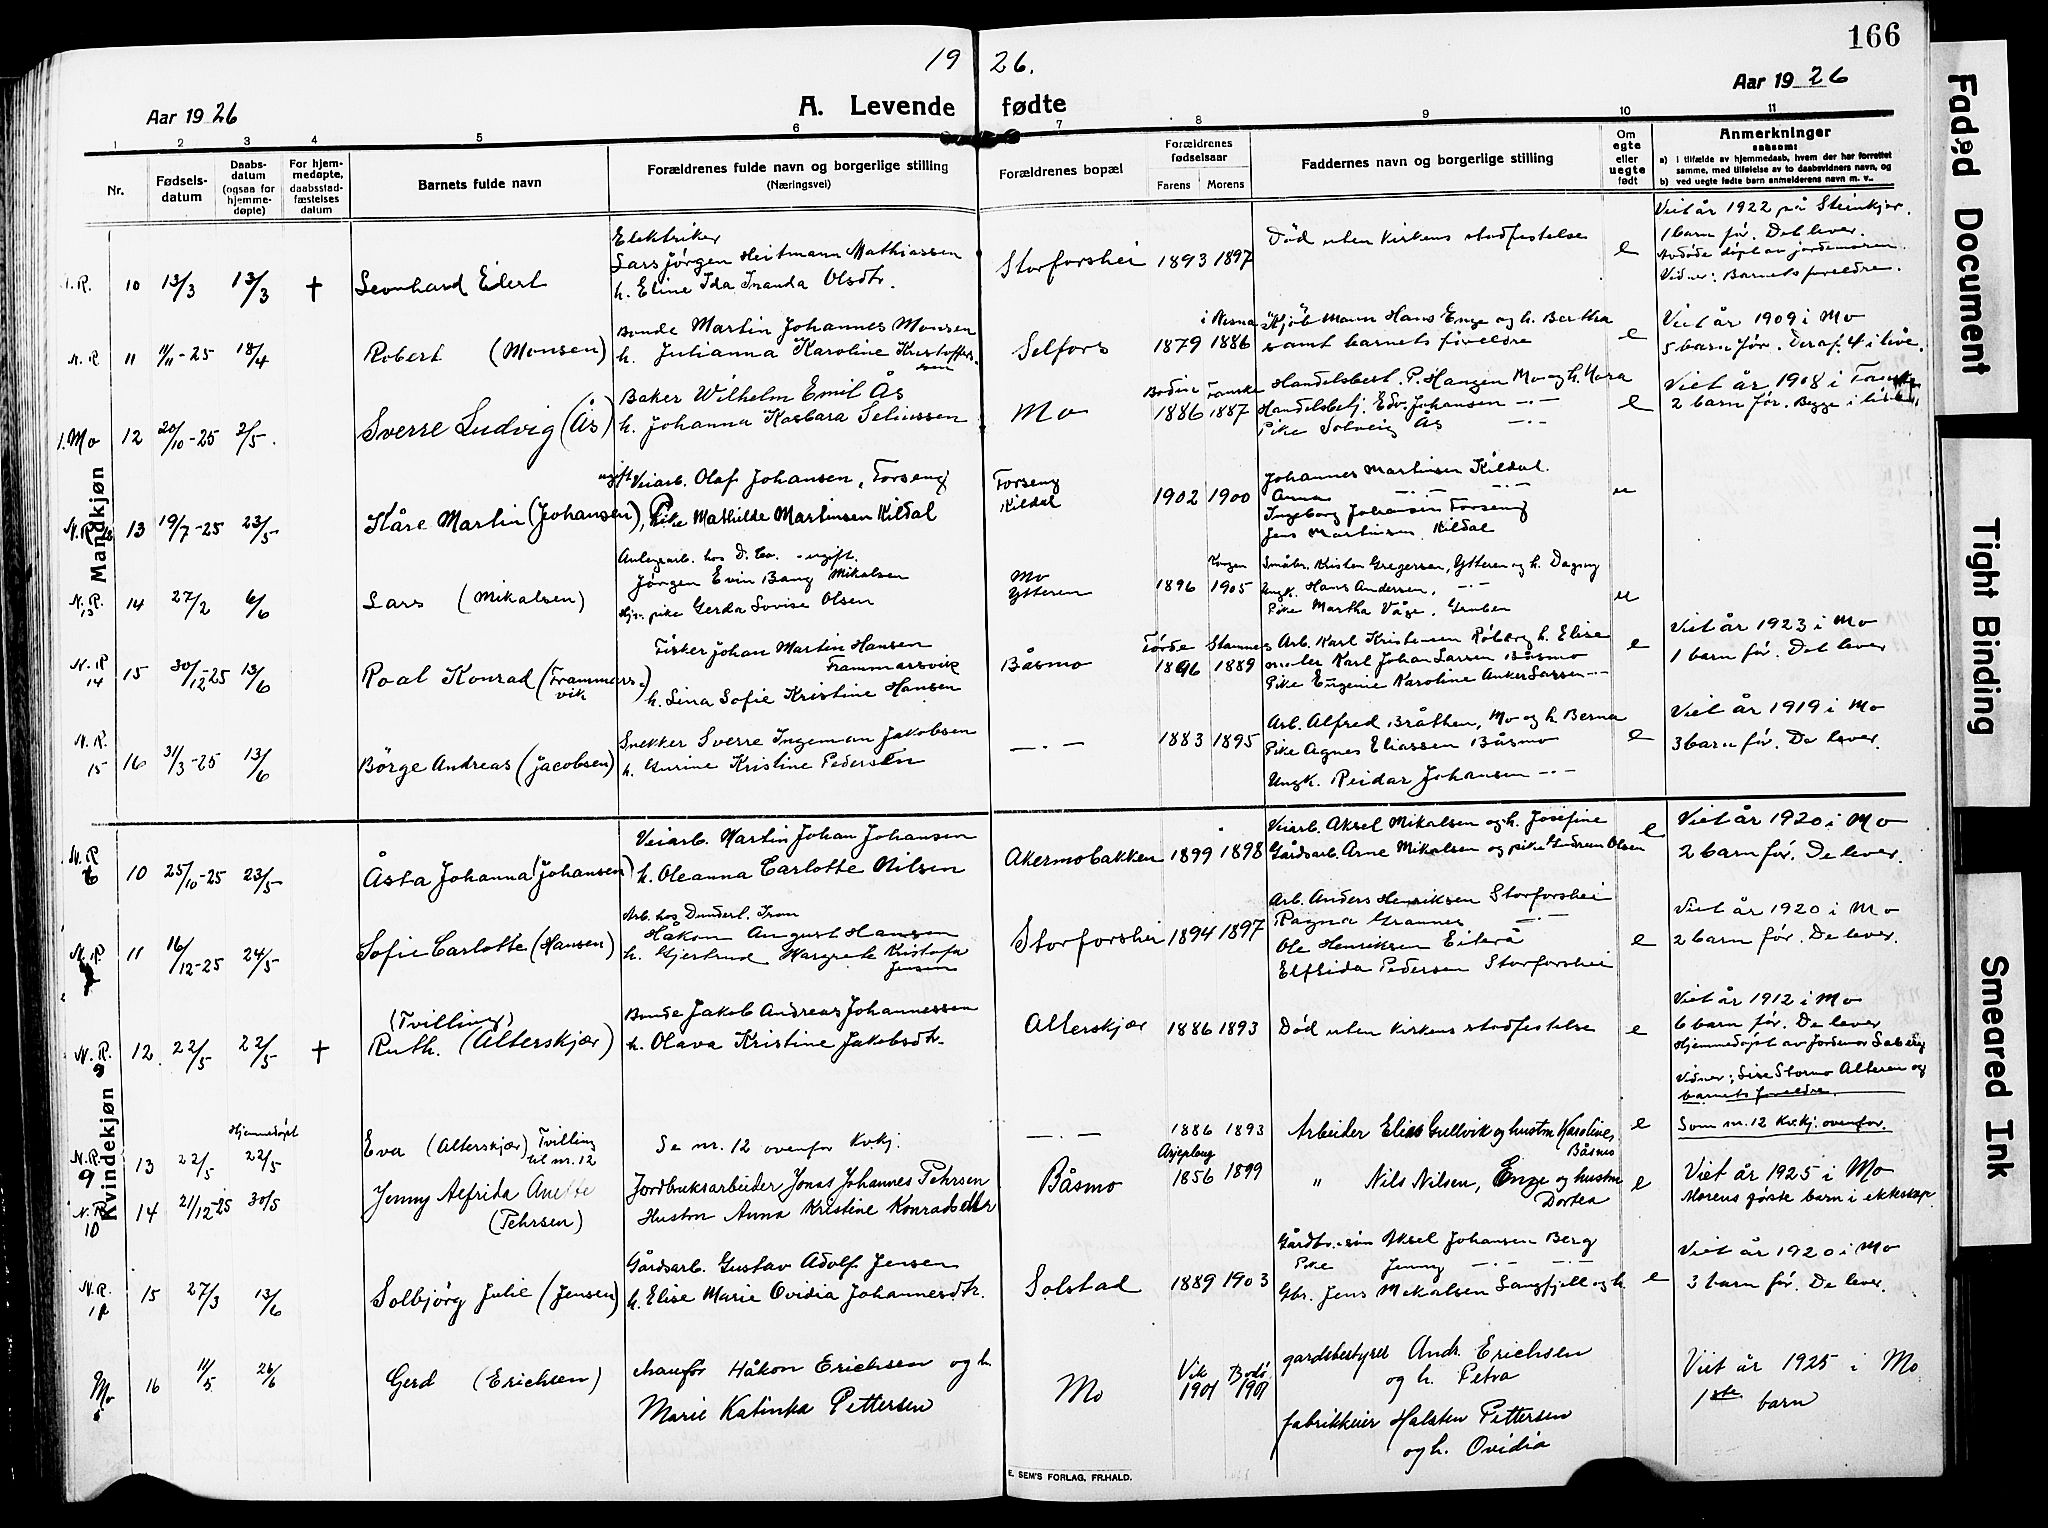 166
19 26.
Aar 1926
A. Levende fødte
Aar 1926
1 2 3 4 5 6 7 8 9 10 11
Nr.
Fødsels-
datum
Daabs-
datum
(ogsaa for
hjemme-
døpte)
For hjem-
medøpte,
daabsstad-
fæstelses
datum
Barnets fulde navn
Forældrenes fulde navn og borgerlige stilling
(Næringsvei)
Forældrenes bopæl
Forældrenes
fødselsaar
Farens Morens
Faddernes navn og borgerlige stilling
Om
egte
eller
uegte
født
Anmerkninger
saasom:
a) i tilfælde av hjemmedaab, hvem der har forrettet
samme, med tilføielse av to daabsvidners navn, og
b) ved uegte fødte barn anmelderens navn m. v.
Mandkjøn
I.R. 10 13/3 13/3 †
Leonhard Edert
Elektriker
Lars Jörgen Heitmann Mathiassen
h. Eline Ida Olsdtr.
Storforshei 1893 1897
Död uten kirkens stadfestelse
e
Viet år 1922 på Steinkjær.
1 barn för. Det lever.
döpt av jordmoren.
Vidner: Barnets foreldre.
N.R 11 11/11-25 18/4
Robert (Monsen)
Bonde Martin Johannes Monsen
h. Julianna Karoline Kristoffer-
sen
Selfors
i Nesna
1879 1886
Kjöbmann Hans Enge og h. Bertha
samt barnets foreldre
e
Viet år 1909 i Mo
5 barn før. Deraf 4 i live.
I.Mo 12 20/10-25 2/5.
Sverre Ludvig (Ås)
Baker Wilhelm Emil Ås
h. Johanna Kasbara Seliussen
Mo
Bodin
1886 1887
Handelsbest. P. Hangen Mo og h. Nora
Handelsbetj. Edv. Johansen -.-
Pike Solveig Ås -.-
e
Viet år 1908 i
2 barn før. Begge i
N.R. 13 19/7-25 23/5
Kåre Martin (Johansen)
ugift Veiarb. Olaf Johansen, Forseng
Pike Mathilde Martinsen Kildal
Forseng
Kildal
1902 1900
Johannes Martinsen Kildal.
Anna -.- -.-
Ingeborg Johansen Forseng
Jens Martinsen, Kildal
u
N.R. 13 14 27/2 6/6
Lars (Mikalsen)
Anlegsarb. hos D. Co. - ugift.
Jörgen Evin Bang Mikalsen
pike Gerda Lovise Olsen
Mo
Ytteren
1896 1905
Småbr. Kristen Gregersen, Ytteren og h. Dagny
Ungk. Hans Andersen, -.-
Pike Martha Våge, Gruben
u
N.R 14 15 30/12-25 13/6
Roal Konrad (Frammars-
vik)
Fisker Johan Martin Hansen
Frammarsvik
h. Lina Sofie Kristine Hansen
Båsmo
Förde Stamnes
1896 1889
Arb. Karl Kristensen Röberg h. Elise
Karl Johan Larsen Båsmo
Pike Eugenie Karoline Anker Larsen -.-
e
Viet år 1923 i Mo
1 barn før. Det lever
N.R. 15 16 31/3-25 13/6
Börge Andreas (Jacobsen)
Snekker Sverre Ingeman Jakobsen
h. Gurine Kristine Pedersen
-.- 1883 1895
Arb. Alfred Bråthen, Mo og h Berna
Pike Agnes Eliassen Båsmo
Ungk. Reidar Johansen -.-
e
Viet år 1919 i Mo
3 barn før. De lever.
Kvindekjøn
N.R 6 10 25/10-25 23/5
Åsta Johanna (Johansen)
Veiarb. Martin Johan Johansen
h. Oleanna Carlotte Nilsen
Akermobakken 1899 1898
Veiarb. Aksel Mikalsen og h. Josefine
Gårdsarb. Arne Mikalsen og pike Gudrun Olsen
e
Viet år 1920 i Mo
2 barn før. De lever.
N.R 11 16/12-25 24/5
Sofie Carlotte (Hansen)
Arb. hos Dunderl. Iron
Håkon August Hansen
h. Gjertrud Margrete Kristofa
Jensen
Storforshei 1894 1897
Arb. Anders Henriksen Storforshei
Ragna Grannes -.-
Ole Henriksen Eiterå
Elfrida Pedersen Storforshei
e
Viet år 1920 i Mo
2 barn før. De lever.
N.R. 12. 22/5 22/5 †
(Tvilling)
Ruth. (Alterskjær)
Bonde Jakob Andreas Johannessen
h. Olava Kristine Jakobsdtr.
Alterskjær 1886 1893
Död uten kirkens stadfestelse
e
Viet år 1912 i Mo
6 barn før. De lever
Hjemmedöpt av Jordmor
Vidner: Storno Alteren og
barnets foreldre.
N.R. 9 13 22/5 Hjemmedöpt 22/5
Eva (Alterskjær) Tvilling
til nr. 12
Se nr. 12 ovenfor Kvkj.
-.- 1886 1893
Arbeider Elias Gullvik og hustru Karoline,
Båsmo
e
Som nr. 12 Kv.kj. ovenfor.
N.R. 10 14 21/12-25 30/5
Jenny Alfrida Anette
(Pehrsen)
Jordbruksarbeider Jonas Johannes Pehrsen
Hustru Anna Kristine Konradsdtr
Båsmo
Arjeplong
1856 1899
" Nils Nilsen, Enge og hustru
Dortea
e
Viet år 1925 i Mo
Morens förste barn i ekteskap.
N.R. 15 27/3 13/6
Solbjörg Julie (Jensen)
Gårdsarb. Gustav Adolf Jensen
h. Elise Marie Ovidia Johannesdtr.
Solstad 1889 1903
Gårdbr. sön Aksel Johansen Berg
Pike Jenny -.- -.-
Gbr. Jens Mikalsen Langfjell og h
e
Viet år 1920 i Mo
3 barn før. De lever.
Mo 16 11/5 26/6
Gerd (Erichsen)
chaufør Håkon Erichsen og h.
Marie Katinka Pettersen
Mo
Vik Bodö
1901 1901
gardsbestyrer Andr. Erichsen
og h. Petra
fabrikkeier Halsten Pettersen
og h. Ovidia
Viet år 1925 i Mo
1ste barn
E. SEM'S FORLAG, FR.HALD.
Faded Document
Tight Binding
Smeared Ink